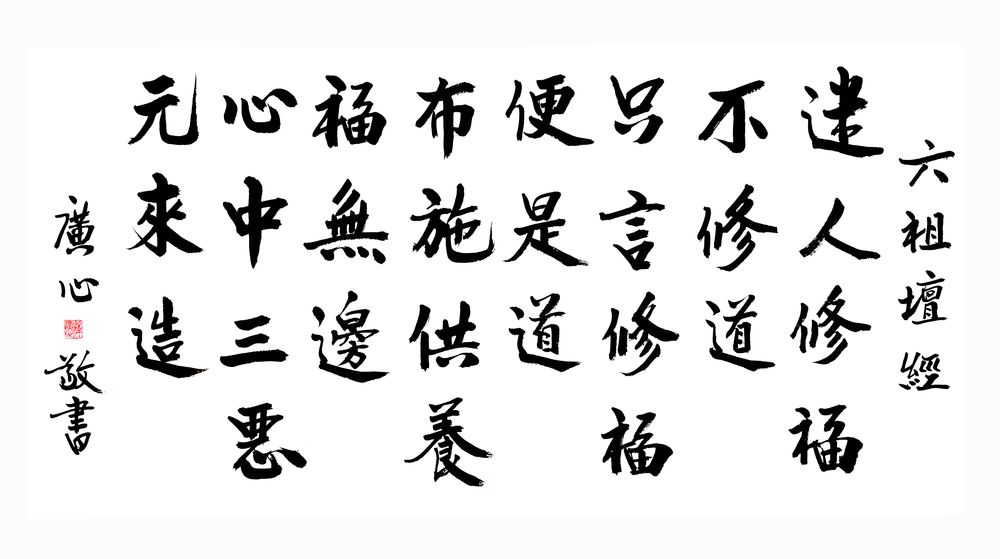 六祖壇經
迷人修福
不修道
只言修福
便是道
布施供養
福無邊
心中三惡
元來造
廣心
敬書